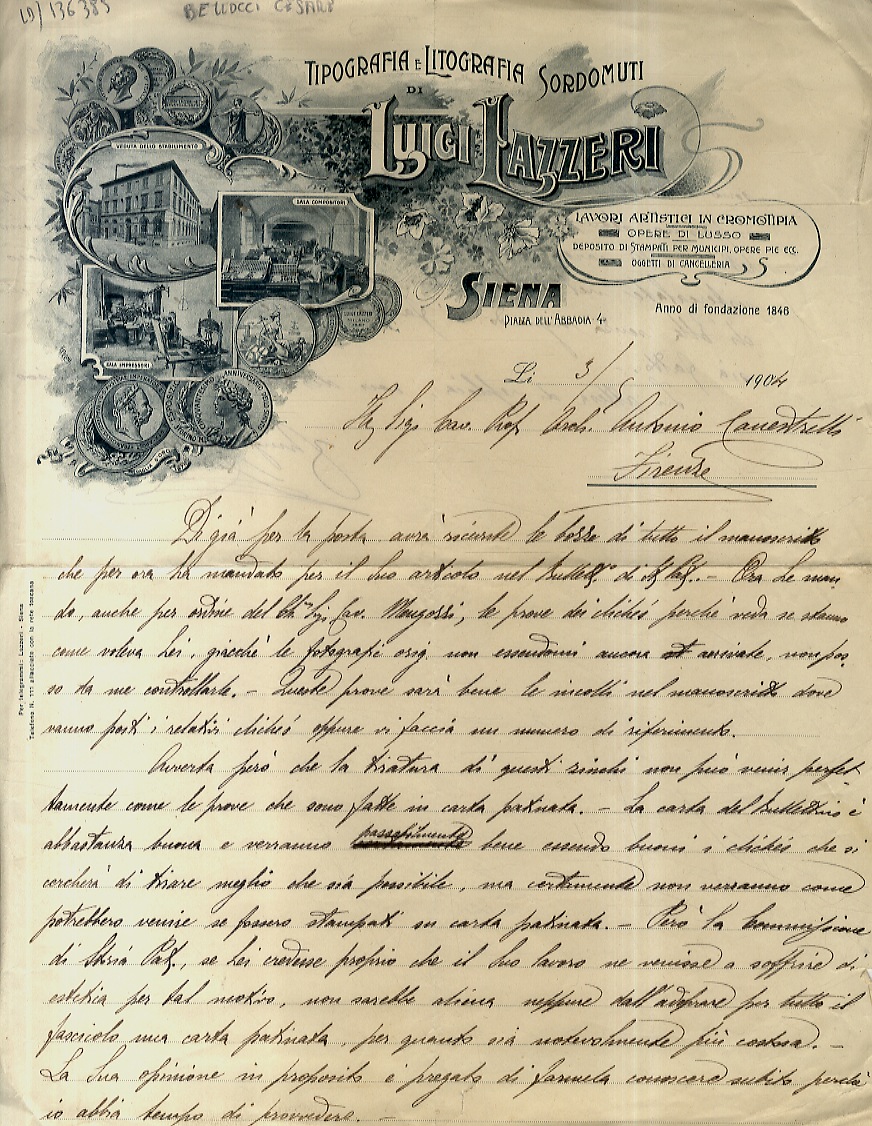 LD/136385
BELLOCCI CESARE
TIPOGRAFIA E LITOGRAFIA SORDOMUTI
DI
LUIGI LAZZERI
VEDUTA DELLO STABILIMENTO
SALA COMPOSITORI
SALA IMPRESSORI
LAVORI ARTISTICI IN CROMOTIPIA
OPERE DI LUSSO
DEPOSITO DI STAMPATI PER MUNICIPI, OPERE PIE ECC.
OGGETTI DI CANCELLERIA
SIENA
PIAZZA DELL'ABBADIA 4
Anno di fondazione 1846
Li 3/5 1904
Ill Sig. Cav. Prof. Arch. Antonio Canestrelli
Firenze
Di già per la posta avrà ricevute le bozze di tutto il manoscritto
che per ora ha mandato per il Suo articolo nel Bullett. di St. Pat. - Ora Le man
do, anche per ordine del Ch. Sig. Cav. Mengozzi, le prove dei clichés perchè veda se stanno
come voleva Lei, giacchè le fotografi orig. non essendomi ancora arrivate, non pos
so da me controllarle. - Queste prove sarà bene le incolli nel manoscritto dove
vanno posti i relativi clichés oppure vi faccia un numero di riferimento.
Avverta però che la tiratura di questi zinchi non può venir perfet
tamente come le prove che sono fatte in carta patinata. - La carta del bullettino è
abbastanza buona e verranno passabilmente bene essendo buoni i clichés che si
cercherà di tirare meglio che sia possibile, ma certamente non verranno come
potrebbero venire se fossero stampati su carta patinata. - Però la Commissione
di Storia Pat., se Lei credesse proprio che il Suo lavoro ne venisse a soffrire di
estetica per tal motivo, non sarebbe aliena neppure dall'adoprare per tutto il
fascicolo una carta patinata, per quanto sia notevolmente più costosa. -
La Sua opinione in proposito è pregato di farmela conoscere subito perchè
io abbia tempo di provvedere. -
Per telegrammi: Lazzeri - Siena
Telefono N. 111 allacciato con la rete toscana